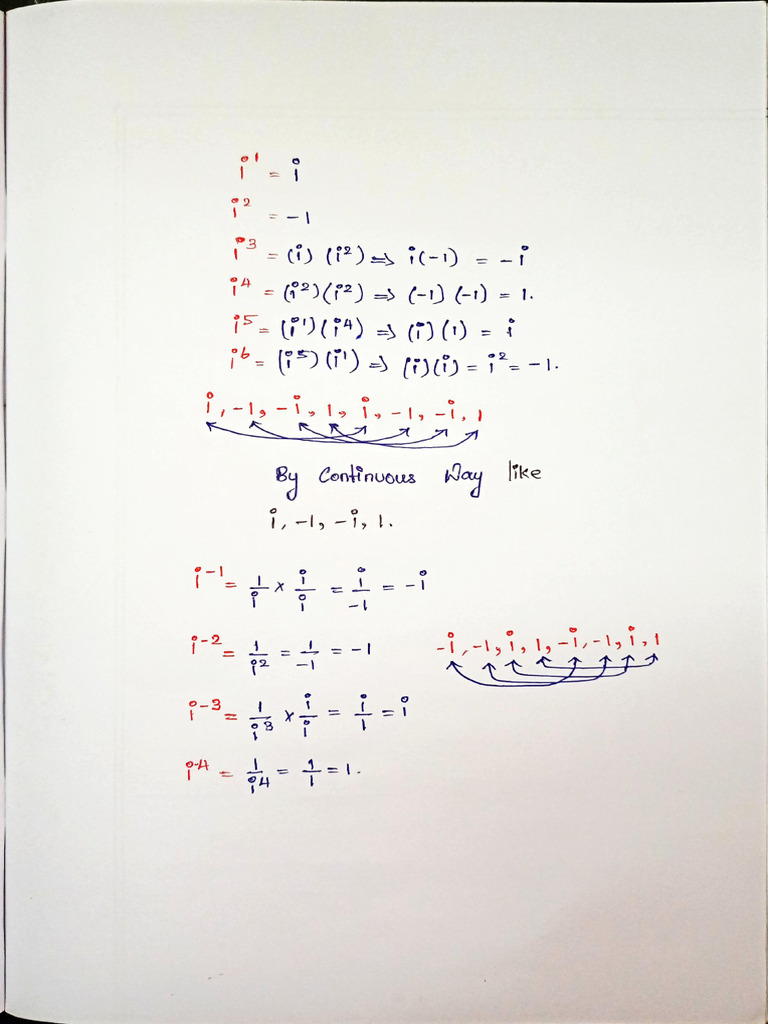 i¹ = i
i² = -1
i³ = (i) (i²) => i(-1) = -i
i⁴ = (i²)(i²) => (-1) (-1) = 1.
i⁵ = (i¹)(i⁴) => (i)(1) = i
i⁶ = (i⁵)(i¹) => (i)(i) = i² = -1.
i, -1, -i, 1, i, -1, -i, 1
By Continuous Way like
i, -1, -i, 1.
i⁻¹ = 1/i × i/i = i/-1 = -i
i⁻² = 1/i² = 1/-1 = -1
-i, -1, i, 1, -i, -1, i, 1
i⁻³ = 1/i³ × i/i = i/1 = i
i⁻⁴ = 1/i⁴ = 1/1 = 1.